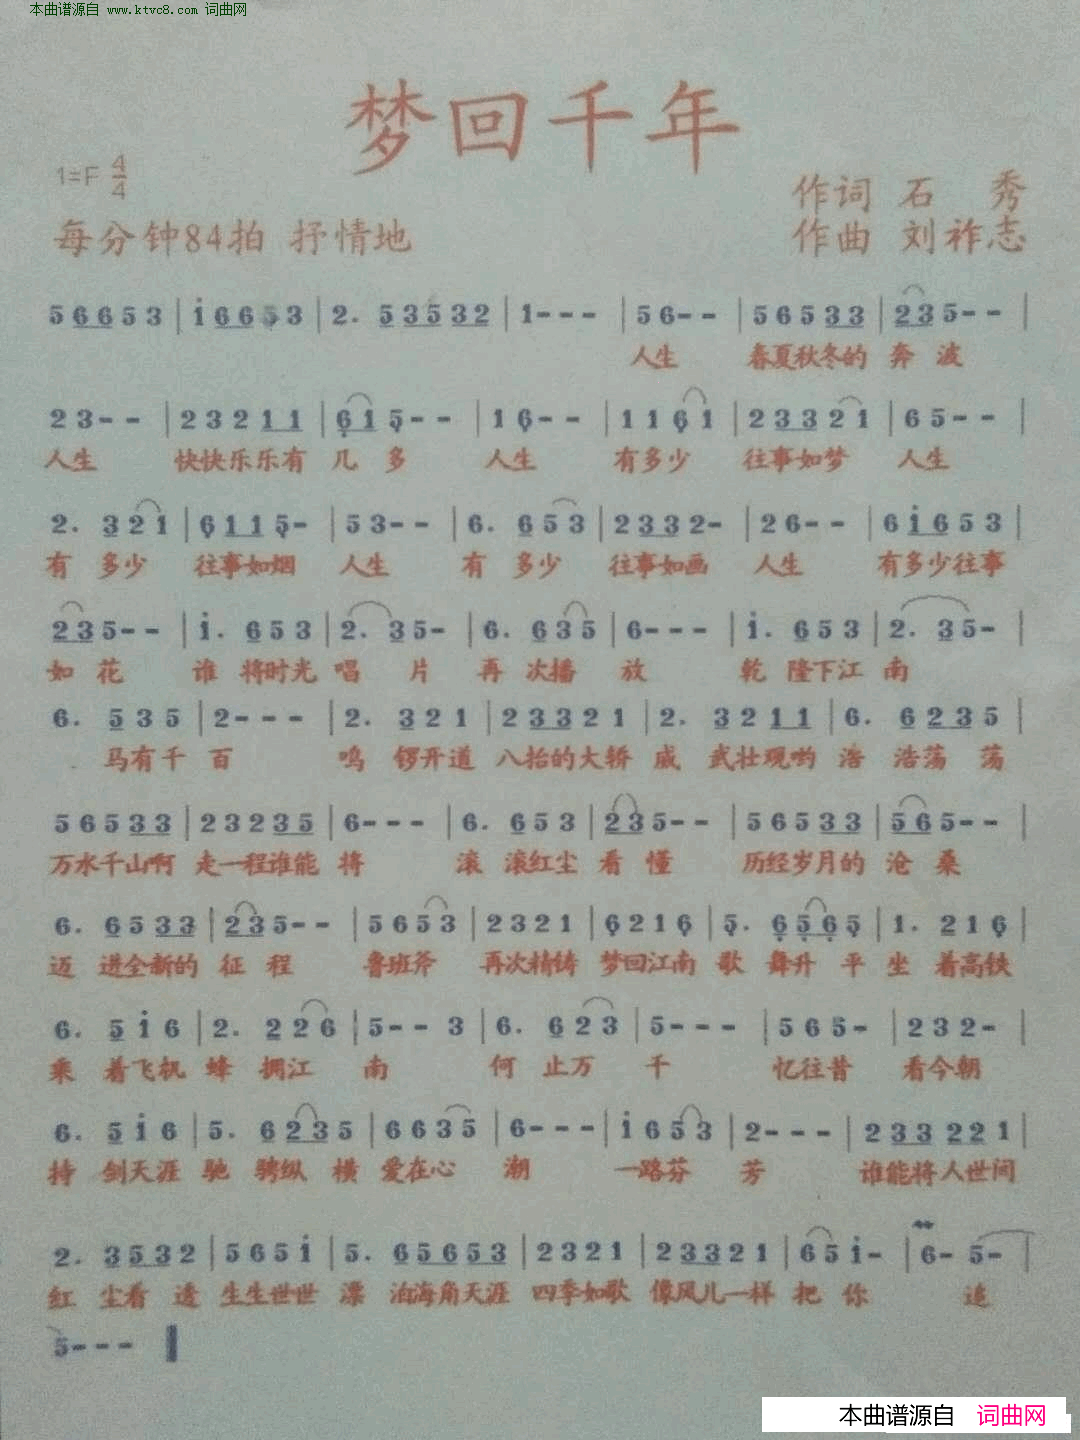 本曲谱源自 www.ktvc8.com 词曲网
梦回千年
1=F 4/4
作词 石 秀
每分钟84拍 抒情地
作曲 刘祚志
5 6 6 5 3 | i 6 6 5 3 | 2. 5 3 5 3 2 | 1 - - - | 5 6 - - | 5 6 5 3 3 | 2 3 5 - - |
人生 春夏秋冬的 奔 波
2 3 - - | 2 3 2 1 1 | 6 1 5 - - | 1 6 - - | 1 1 6 1 | 2 3 3 2 1 | 6 5 - - |
人生 快快乐乐有 几 多 人生 有多少 往事如梦 人生
2. 3 2 1 | 6 1 1 5 - | 5 3 - - | 6. 6 5 3 | 2 3 3 2 - | 2 6 - - | 6 i 6 5 3 |
有 多少 往事如烟 人生 有 多少 往事如画 人生 有多少往事
2 3 5 - - | i. 6 5 3 | 2. 3 5 - | 6. 6 3 5 | 6 - - - | i. 6 5 3 | 2. 3 5 - |
如 花 谁 将时光 唱 片 再 次播 放 乾 隆下江 南
6. 5 3 5 | 2 - - - | 2. 3 2 1 | 2 3 3 2 1 | 2. 3 2 1 1 | 6. 6 2 3 5 |
马有千 百 鸣 锣开道 八抬的大轿 威 武壮观哟 浩 浩荡 荡
5 6 5 3 3 | 2 3 2 3 5 | 6 - - - | 6. 6 5 3 | 2 3 5 - - | 5 6 5 3 3 | 5 6 5 - - |
万水千山啊 走一程谁能 将 滚 滚红尘 看 懂 历经岁月的 沧 桑
6. 6 5 3 3 | 2 3 5 - - | 5 6 5 3 | 2 3 2 1 | 6 2 1 6 | 5. 6 5 6 5 | 1. 2 1 6 |
迈 进全新的 征 程 鲁班斧 再次精铸 梦回江南 歌 舞升 平 坐 着高铁
6. 5 i 6 | 2. 2 2 6 | 5 - - 3 | 6. 6 2 3 | 5 - - - | 5 6 5 - | 2 3 2 - |
乘 着飞机 蜂 拥江 南 何 止万 千 忆往昔 看今朝
6. 5 i 6 | 5. 6 2 3 5 | 6 6 3 5 | 6 - - - | i 6 5 3 | 2 - - - | 2 3 3 2 2 1 |
持 剑天涯 驰 骋纵 横 爱在心 潮 一路芬 芳 谁能将人世间
2. 3 5 3 2 | 5 6 5 i | 5. 6 5 6 5 3 | 2 3 2 1 | 2 3 3 2 1 | 6 5 i - | 6 - 5 - |
红 尘看 透 生生世世 漂 泊海角天涯 四季如歌 像风儿一样 把 你 追
5 - - -
本曲谱源自 词曲网